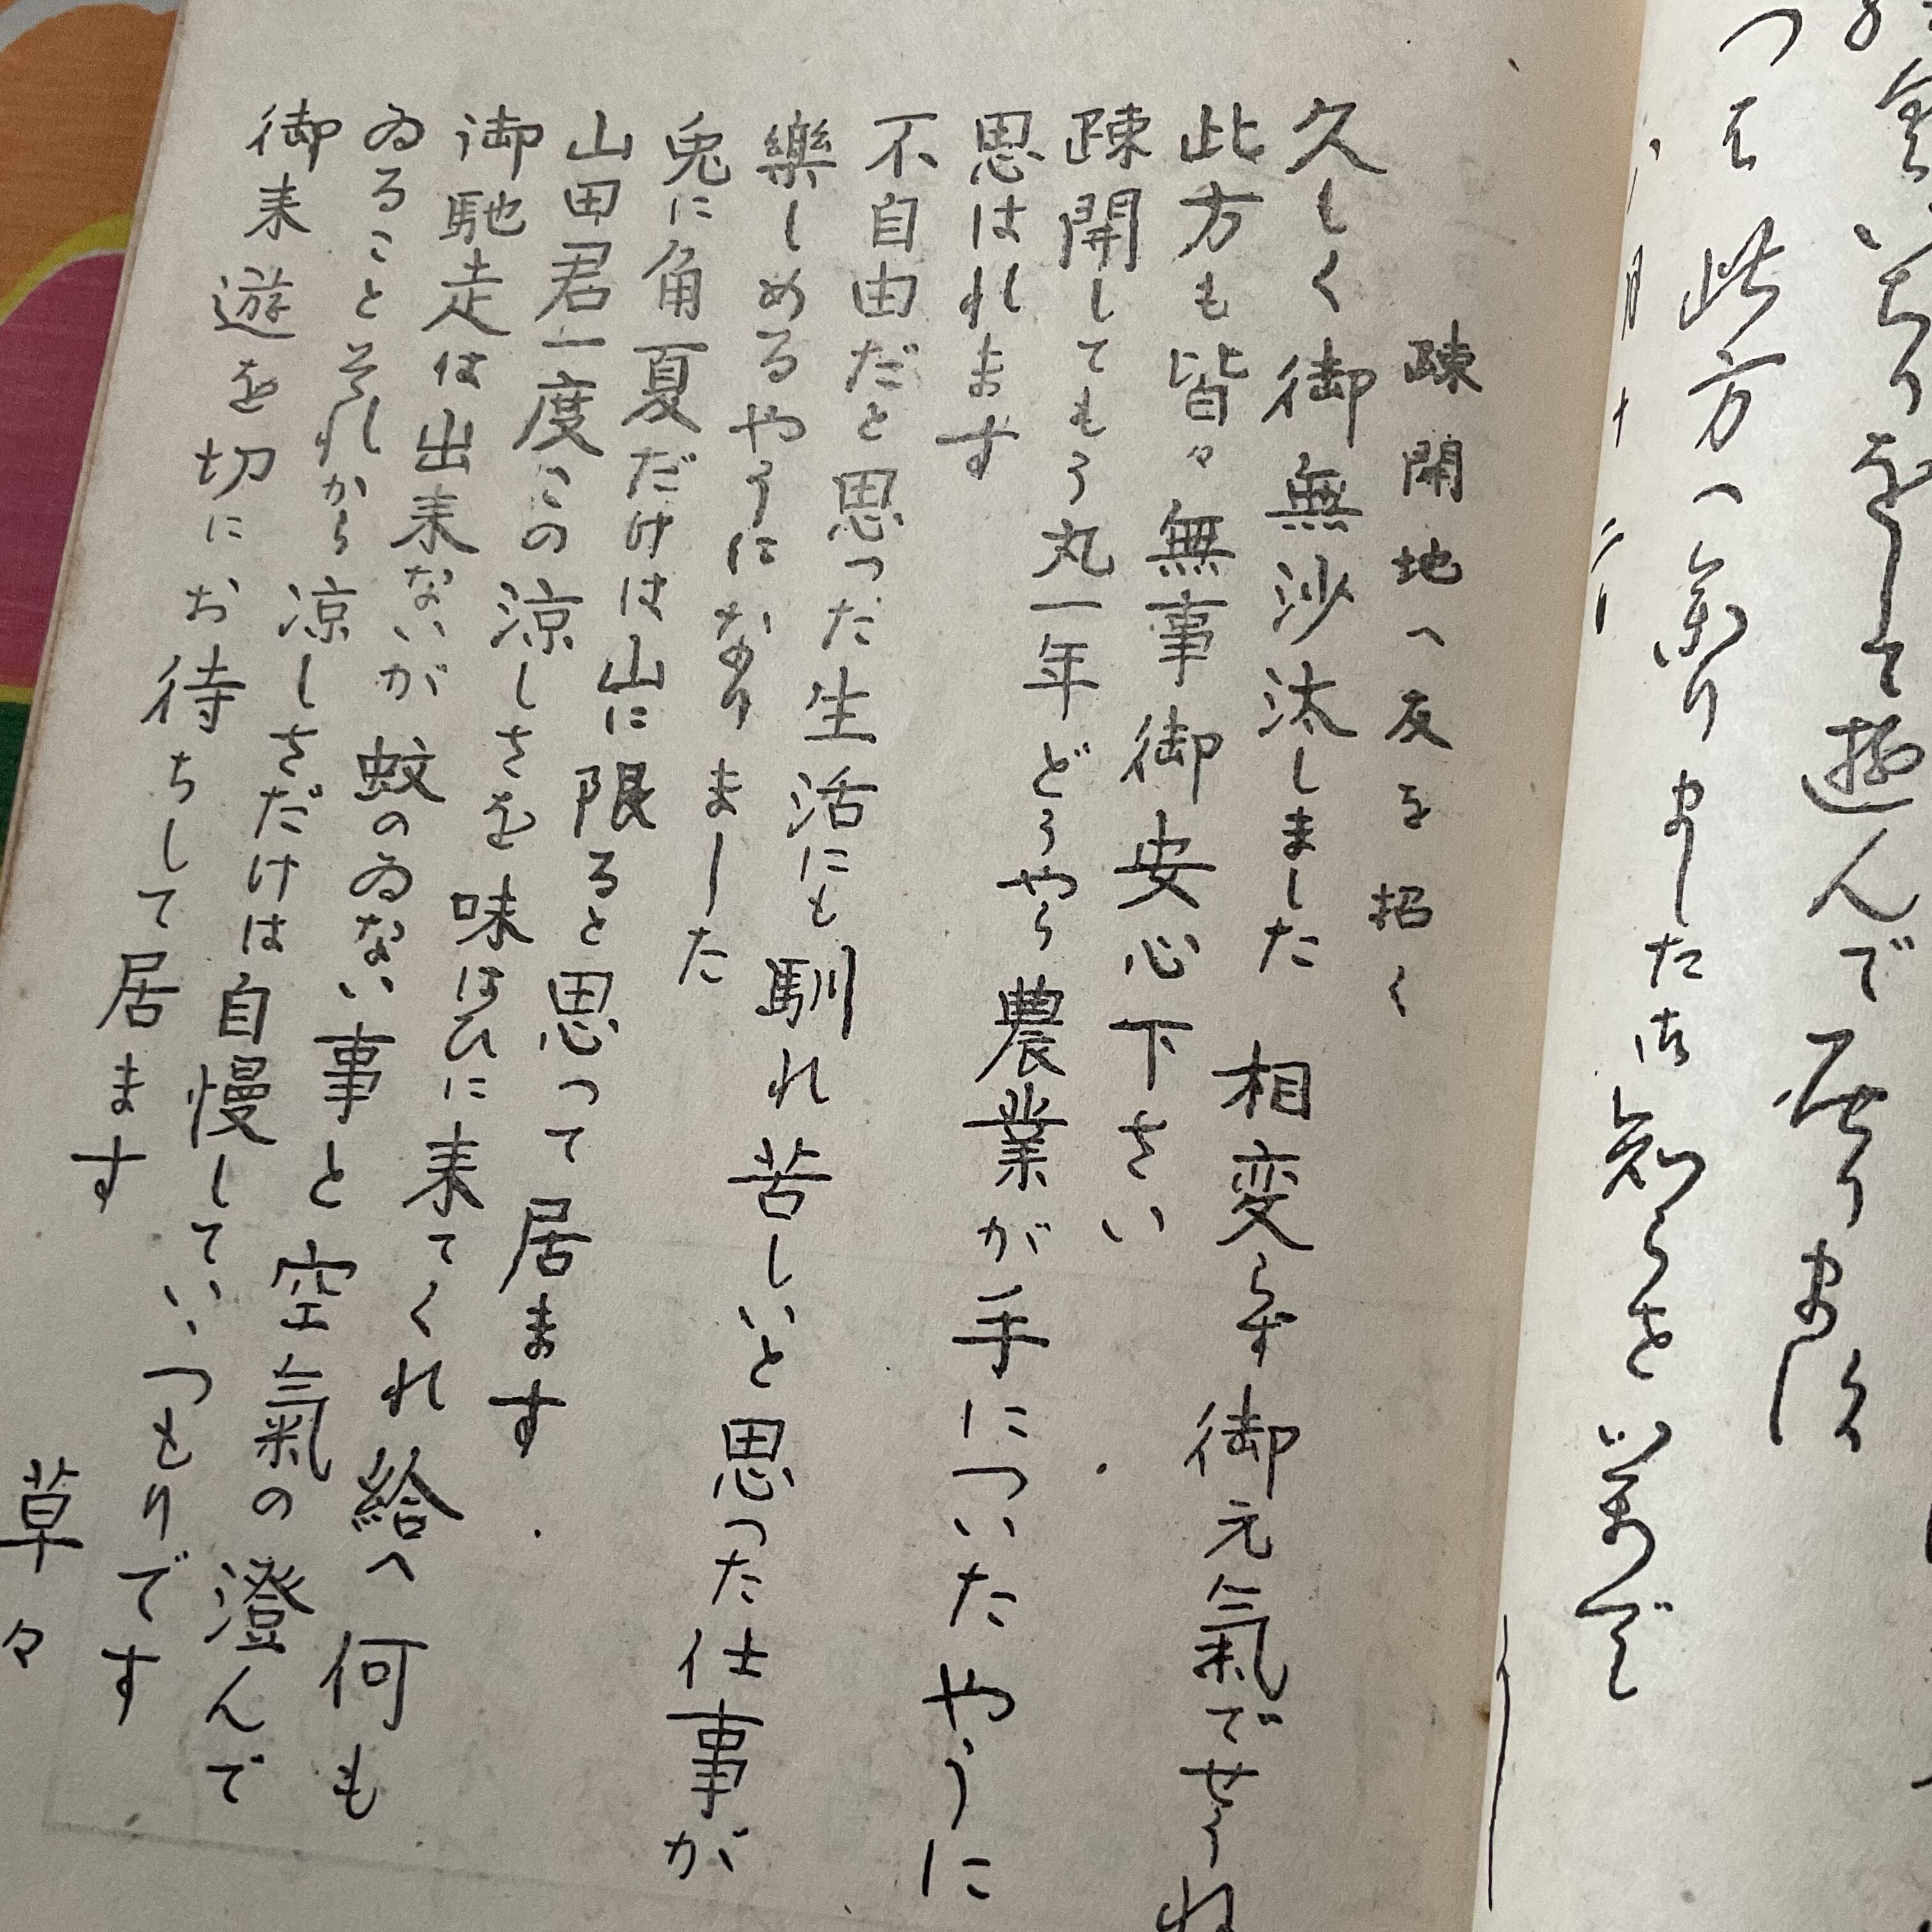 遊んで居ります
つもは此方へ参りました御知らせいたまで
疎開地へ友を招く
久しく御無沙汰しました 相変らず御元氣でせうね
此方も皆々無事御安心下さい
疎開してもう丸一年どうやら農業が手についたやうに
思はれます
不自由だと思った生活にも馴れ苦しいと思った仕事が
樂しめるやうになりました
兎に角夏だけは山に限ると思って居ます
山田君一度この涼しさを味はひに来てくれ給へ何も
御馳走は出来ないが蚊のゐない事と空氣の澄んで
ゐることそれから涼しさだけは自慢していゝつもりです
御来遊を切にお待ちして居ます
草々